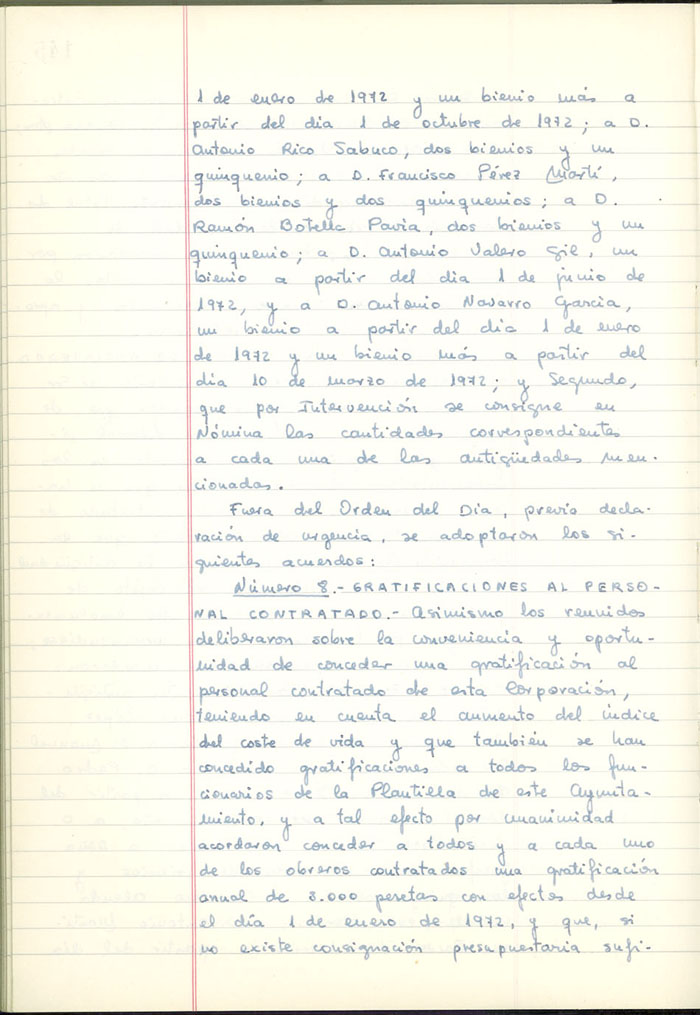 1 de enero de 1972 y un bienio más a
partir del dia 1 de octubre de 1972; a D.
Antonio Rico Sabuco, dos bienios y un
quinquenio; a D. Francisco Pérez Martí,
dos bienios y dos quinquenios; a D.
Ramón Botella Pavia, dos bienios y un
quinquenio; a D. Antonio Valero Gil, un
bienio a partir del dia 1 de junio de
1972, y a D. Antonio Navarro Garcia,
un bienio a partir del dia 1 de enero
de 1972 y un bienio más a partir del
dia 10 de marzo de 1972; y Segundo,
que por Intervención se consigne en
Nómina las cantidades correspondientes
a cada una de las antigüedades men-
cionadas.
Fuera del Orden del Dia, previo decla-
ración de urgencia, se adoptaron los si-
guientes acuerdos:
Número 8.- GRATIFICACIONES AL PERSO-
NAL CONTRATADO.- Asimismo los reunidos
deliberaron sobre la conveniencia y oportu-
nidad de conceder una gratificación al
personal contratado de esta Corporación,
teniendo en cuenta el aumento del índice
del coste de vida y que también se han
concedido gratificaciones a todos los fun-
cionarios de la Plantilla de este Ayunta-
miento, y a tal efecto por unanimidad
acordaron conceder a todos y a cada uno
de los obreros contratados una gratificación
anual de 3.000 pesetas con efectos desde
el día 1 de enero de 1972, y que, si
no existe consignación presupuestaria sufi-